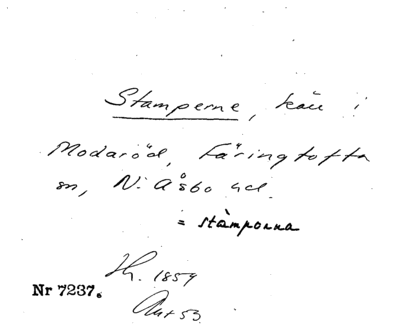 Stamperne, kärr i
Modaröd, Färingtofta
sn, N. Åsbo hd.
= stàmporna
1859
Nr 7237.
Akt 53